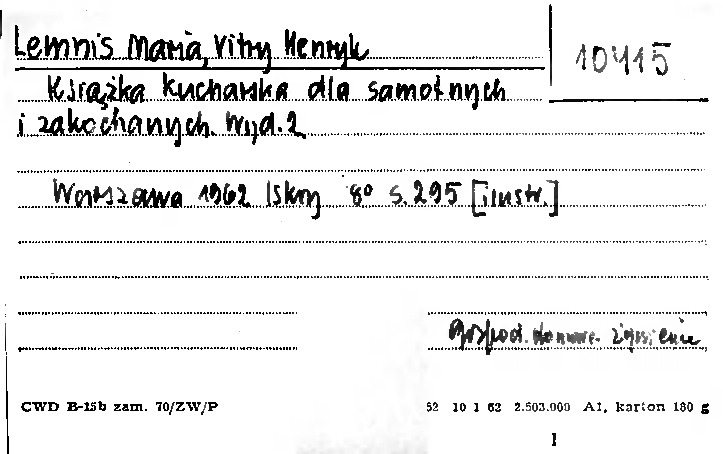 Lemnis Maria, Vitry Henryk
10415
Książka kucharska dla samotnych
i zakochanych. Wyd. 2
Warszawa 1962 Iskry 8° s. 295 [ilustr.]
Gospod. domowe. Żywienie
CWD B-15b zam. 70/ZW/P
52 10 1 62 2.503.000 A1, karton 180 g
1